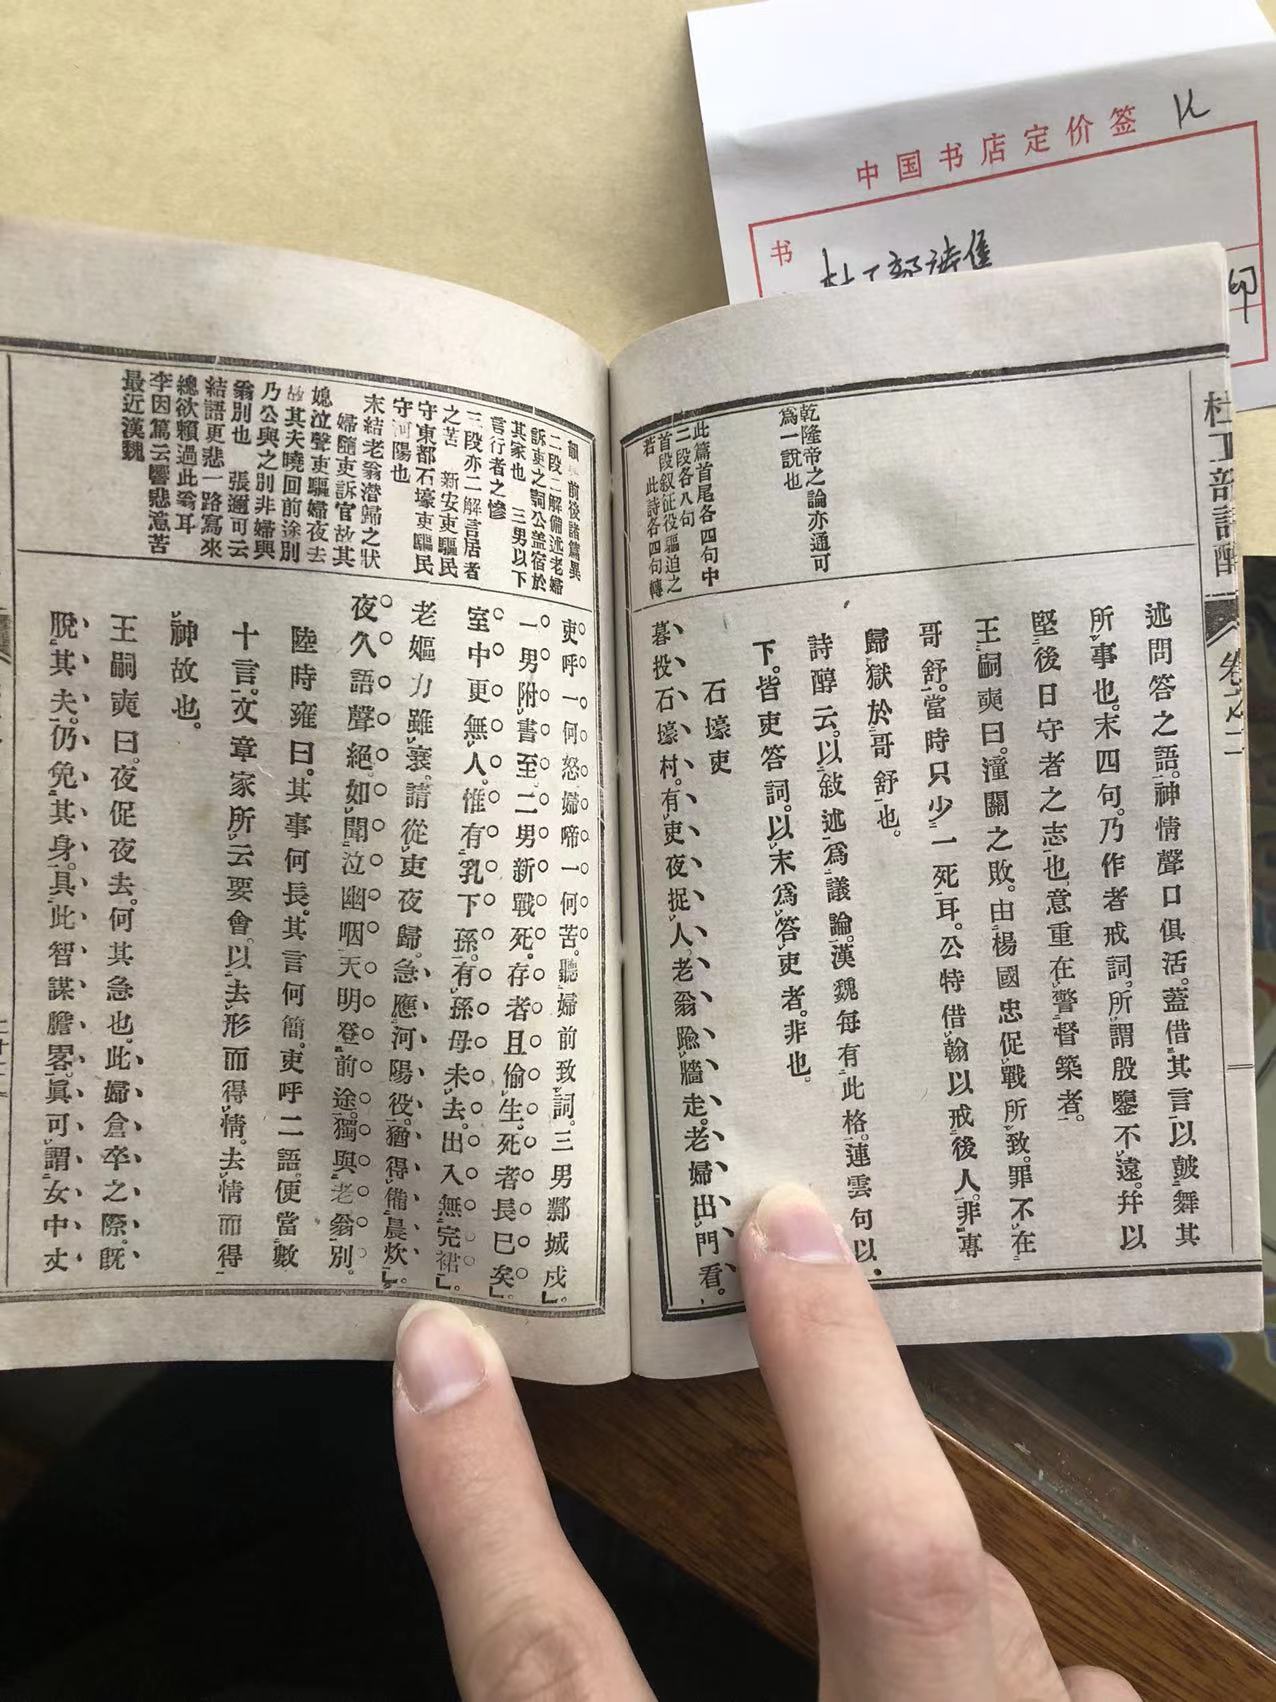 中国书店定价签
书
杜工部诗
印
杜工部詩醇
卷之二
乾隆帝之論亦通可
爲一說也
此篇首尾各四句中
二段各八句
首段叙征役驅迫之
若　此詩各四句轉
述問答之語。神情聲口俱活。蓋借其言以皷舞其
所事也。末四句。乃作者戒詞。所謂殷鑒不遠。幷以
堅後日守者之志也。意重在警督築者。
王嗣奭曰。潼關之敗。由楊國忠促戰所致。罪不在
哥舒。當時只少一死耳。公特借翰以戒後人。非專
歸獄於哥舒也。
詩醇云。以敍述爲議論。漢魏每有此格。連雲句以
下。皆吏答詞。以末爲答吏者。非也。
石壕吏
暮投石壕村。有吏夜捉人。老翁踰牆走。老婦出門看。
韻　前後諸篇異
二段二解備述老婦
訴吏之詞公盖宿於
其家也　三男以下
言行者之慘
三段亦二解言居者
之苦　新安吏驅民
守東都石壕吏驅民
守河陽也
末結老翁潜歸之狀
婦隨吏訴官故其
媳泣聲吏驅婦夜去
故其夫曉回前途別
乃公與之別非婦與
翁別也　張邇可云
結語更悲一路寫來
總欲賴過此翁耳
李因篤云響悲意苦
最近漢魏
吏呼一何怒。婦啼一何苦。聽婦前致詞。三男鄴城戍。
一男附書至。二男新戰死。存者且偷生。死者長已矣。
室中更無人。惟有乳下孫。有孫母未去。出入無完裙。
老嫗力雖衰。請從吏夜歸。急應河陽役。猶得備晨炊。
夜久語聲絕。如聞泣幽咽。天明登前途。獨與老翁別。
陸時雍曰。其事何長。其言何簡。吏呼二語。便當數
十言。文章家所云要會。以去形而得情。去情而得
神故也。
王嗣奭曰。夜促夜去。何其急也。此婦倉卒之際。既
脫其夫。仍免其身。具此智謀膽畧。眞可謂女中丈